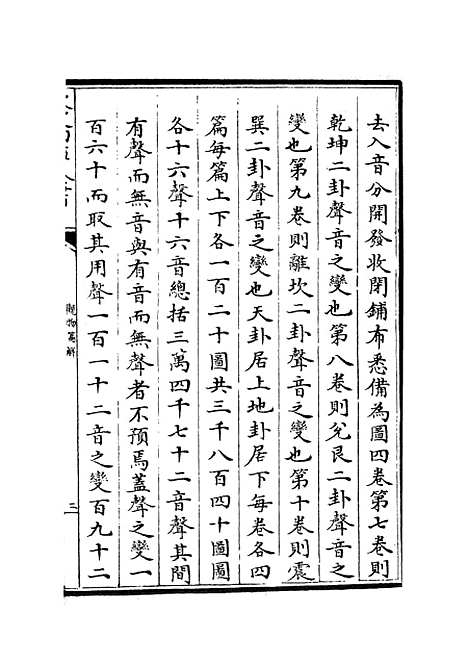 去入音分開發收閉鋪布悉備為圖四卷第七卷則
乾坤二卦聲音之變也第八卷則兌艮二卦聲音之
變也第九卷則離坎二卦聲音之變也第十卷則震
巽二卦聲音之變也天卦居上地卦居下每卷各四
篇每篇上下各一百二十圖共三千八百四十圖圖
各十六聲十六音總括三萬四千七十二音聲其間
有聲而無音與有音而無聲者不預焉蓋聲之變一
百六十而取其用聲一百一十二音之變百九十二
觀物篇解
三